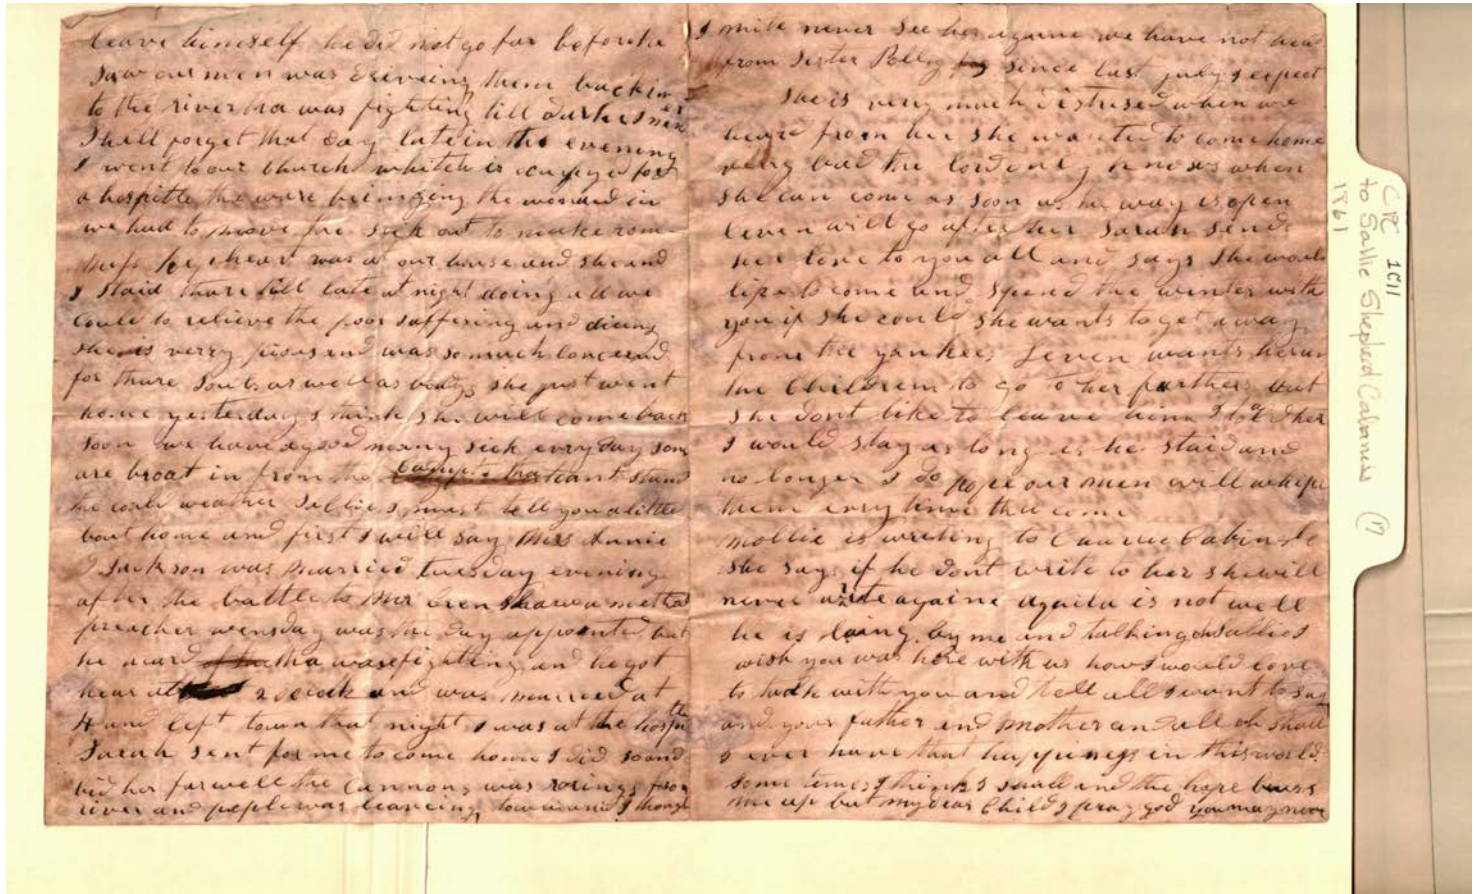 leave himself he did not go far before he
saw our men was driveing them back in
to the river tha was fighting till dark I never
shall forget that day late in the evening
I went to our church whitch is ocupyed for
a hospitle the ware bringing the wonded in
we had to move the sick out to make rome
was at our house and she and
I staid thare till late at night doing all we
could to relieve the poor suffering and dieing
she is verry pious and was so much concernd
for thare souls as well as bodys she just went
home yesterday I think she will come back
soon we have a good meny sick every day som
are broat in from the camps tha cant stand
the could weather Sallie I must tell you a little
bout home and first I will say Miss Annie
Jackson was married tuesday evening
after the battle to Mr a methat
preacher wensday was the day appointed but
he heard tha ware fighting and he got
hear at 2 oclock and was married at
4 and left town that night I was at the hospitle
Sarah sent for me to come home I did so and
bid her farwell the cannons was roring from
river and peple was leaveing town and I though
I mite never see her againe we have not heard
from Sister Polley since last july I expect
she is very much distrised when we
heard from her she wanted to come home
very bad the lord only knows when
she can come as soon as the way is open
Leven will go after her Sarah sends
her love to you all and says she would
like to come and spend the winter with
you if she could she wants to get away
from the yankees Leven wants her and
the children to go to her farthers but
she dont like to leave him I told her
I would stay as long as he staid and
no longer I do hope our men will whipe
them every time the come
Mollie is writing to Cabiness
she says if he dont write to her she will
never write againe is not well
he is laing by me and talking Sallie I
wish you was here with us how I would love
to talk with you and tell all I want to say
and your father and mother and all oh shall
I ever have that hapyness in this world
some times I think I shall and the hope buars
me up but my dear Child I pray god you may never
CPC 1C11
to Sallie Shepherd Cabaniss (17)
1861